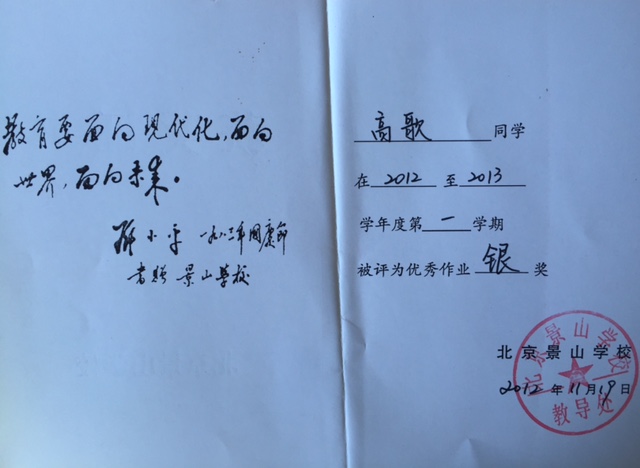 教育要面向现代化,面向
世界,面向未来。
邓小平 一九八三年国庆节
书赠景山学校
高歌同学
在2012至2013
学年度第一学期
被评为优秀作业银奖
北京景山学校
2012年11月19日
北京景山学校
教导处